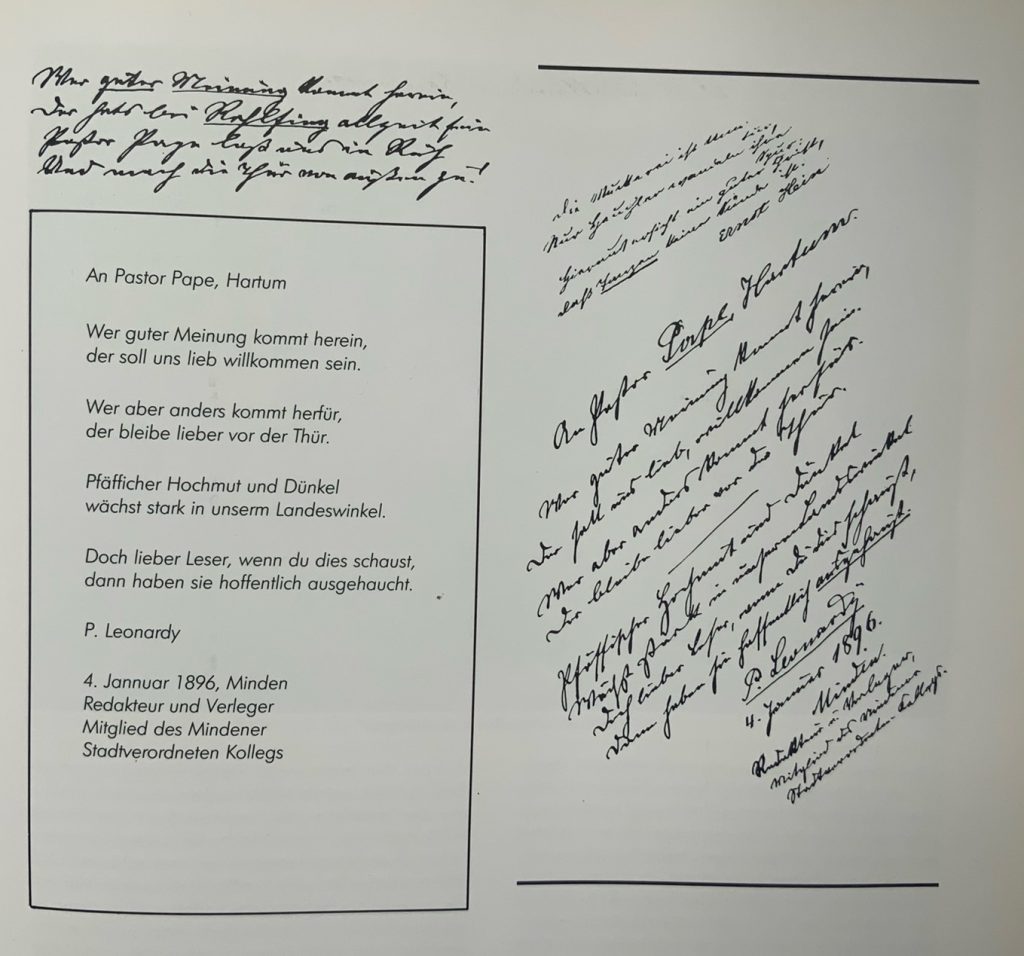 Wer guter Meinung kommt herein,
Der hats bei Rahlfing allzeit fein
Pastor Pape laß uns in Ruh
Und mach die Thür von außen zu!
An Pastor Pape, Hartum
Wer guter Meinung kommt herein,
der soll uns lieb willkommen sein.
Wer aber anders kommt herfür,
der bleibe lieber vor der Thür.
Pfäfficher Hochmut und Dünkel
wächst stark in unserm Landeswinkel.
Doch lieber Leser, wenn du dies schaust,
dann haben sie hoffentlich ausgehaucht.
P. Leonardy
4. Jannuar 1896, Minden
Redakteur und Verleger
Mitglied des Mindener
Stadtverordneten Kollegs
Die Muckerei ist
Nur Heuchler wandeln ihre
Spur.
Hieraus ersieht ein guter Christ,
daß Tanzen keine Sünde ist.
Ernst Hein
An Pastor Pape, Hartum.
Wer guter Meinung kommt herein,
Der soll uns lieb, willkommen sein.
Wer aber anders kommt herfür,
Der bleibe lieber vor die Thür.
Pfäffischer Hochmut und Dünkel
Wächst stark in unserm Landeswinkel
Doch lieber Leser, wenn Du dies schaust,
Dann haben sie hoffentlich ausgehaucht.
P. Leonardy
4. Januar 1896.
Minden.
Redakteur u. Verleger,
Mitglied des Mindener
Stadtverordneten-Kollegs.